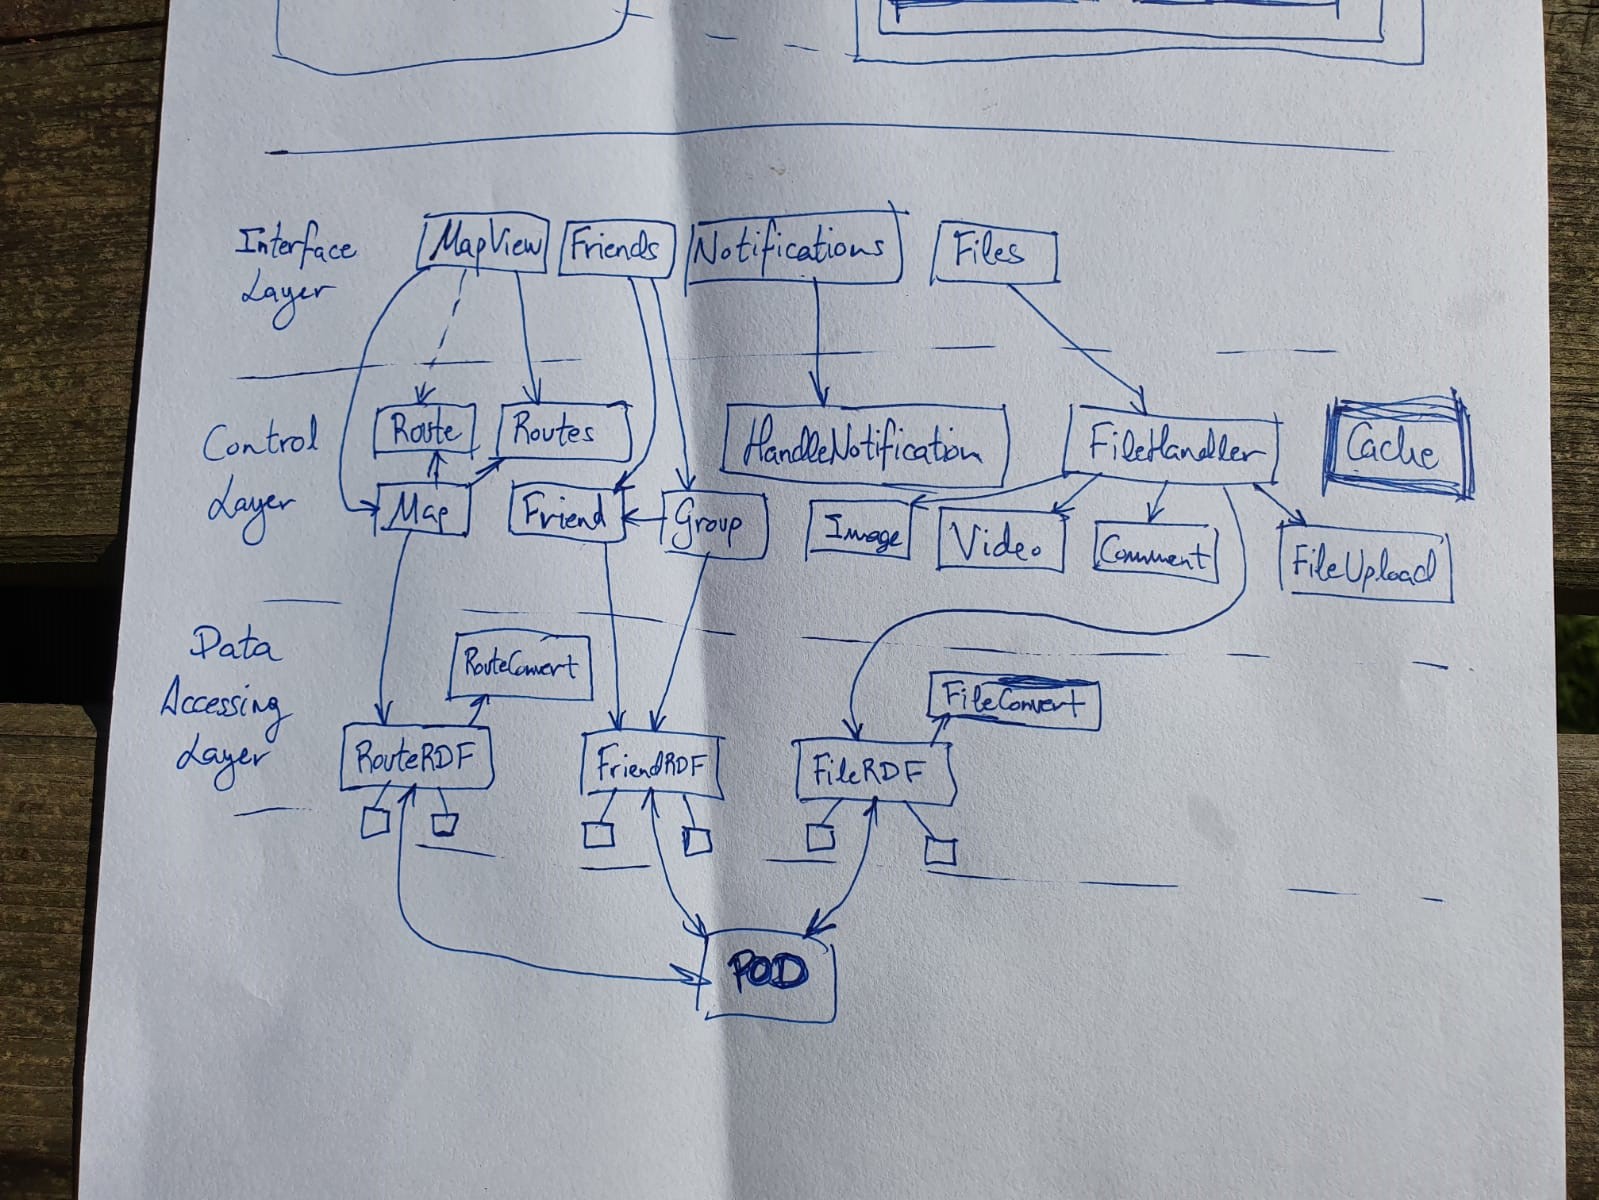 Interface
Layer
MapView
Friends
Notifications
Files
Control
Layer
Route
Routes
HandleNotification
FileHandler
Cache
Map
Friend
Group
Image
Video
Comment
FileUpload
Data
Accessing
Layer
RouteConvert
FileConvert
RouteRDF
FriendRDF
FileRDF
POD